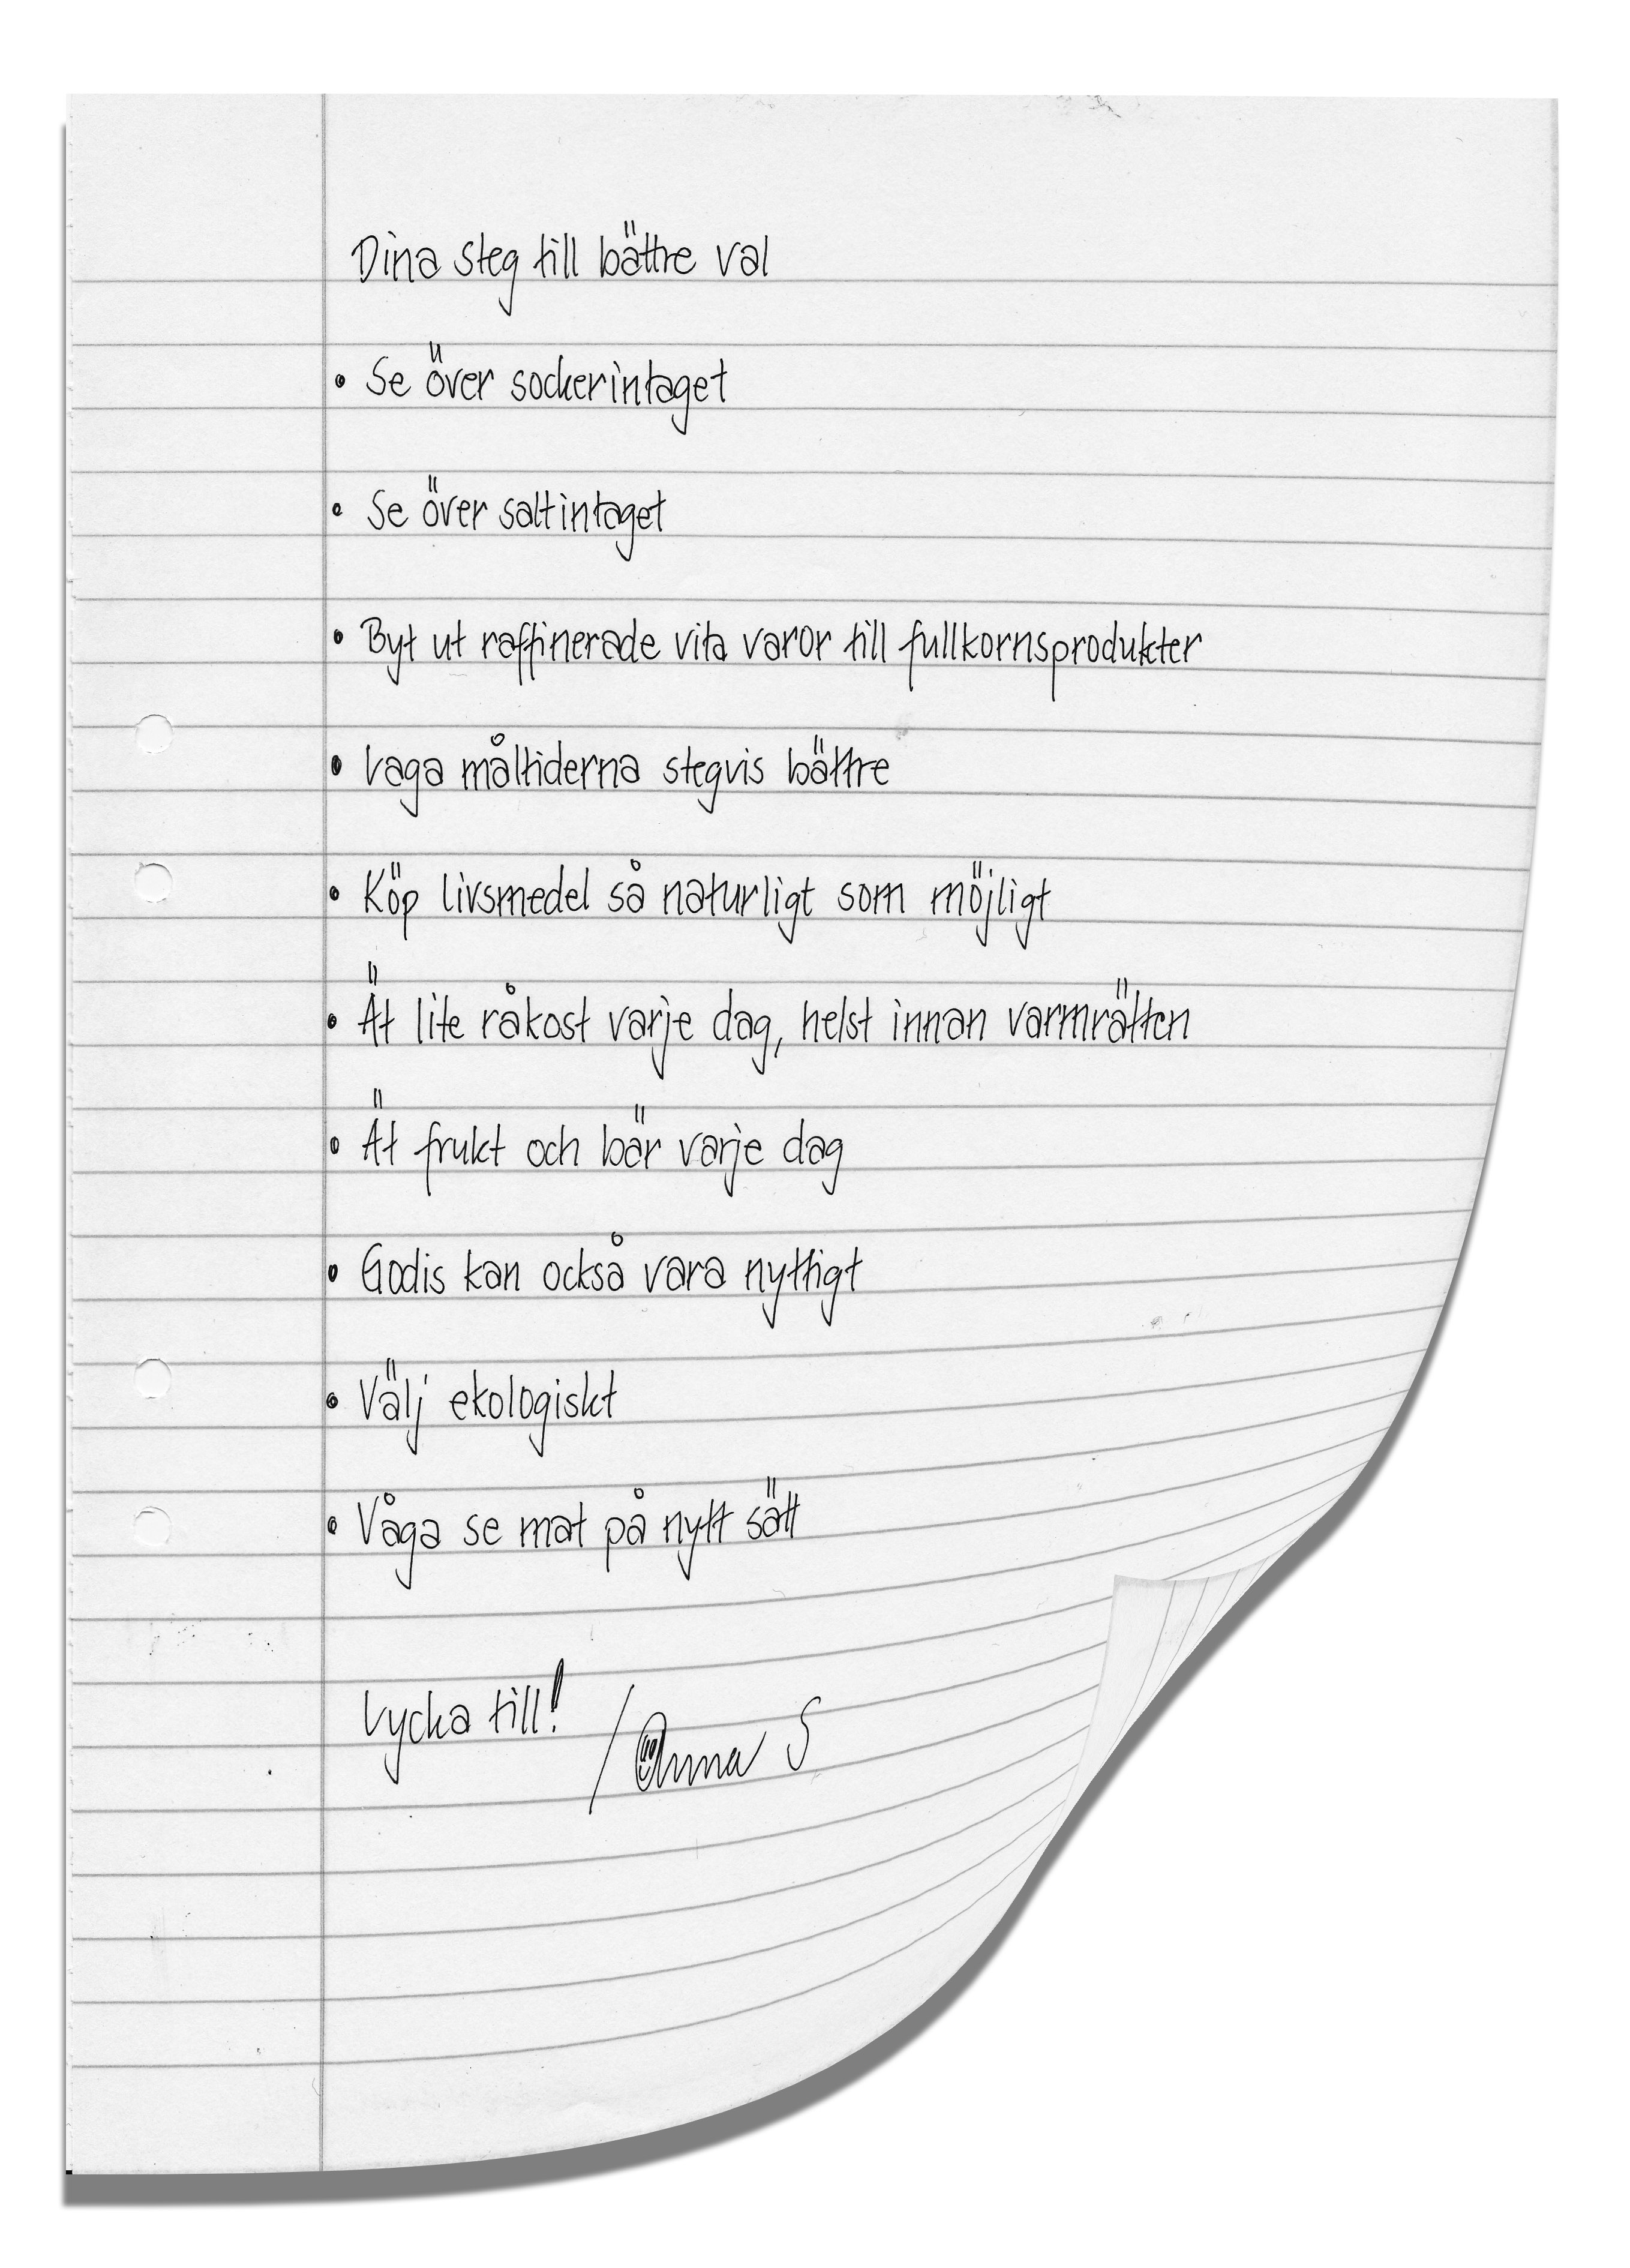 Dina steg till bättre val
• Se över sockerintaget
• Se över saltintaget
• Byt ut raffinerade vita varor till fullkornsprodukter
• Laga måltiderna stegvis bättre
• Köp livsmedel så naturligt som möjligt
• Ät lite råkost varje dag, helst innan varmrätten
• Ät frukt och bär varje dag
• Godis kan också vara nyttigt
• Välj ekologiskt
• Våga se mat på nytt sätt
Lycka till! /Anna S